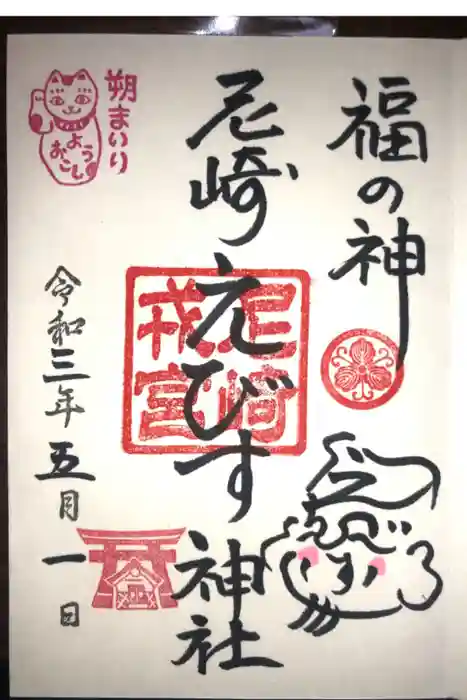 福の神
尼崎えびす神社
尼崎
戎宮
えびす
朔まいり
ようおこし
令和三年五月一日